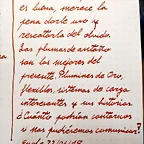 es buena, merece la
pena darle uso y
rescatarla del olvido.
Las plumas de antaño
son las mejores del
presente. Plumines de Oro,
flexibles, sistemas de carga
interesantes y sus historias
¿Cuánto podrían contarnos
si nos pudiéramos comunicar?